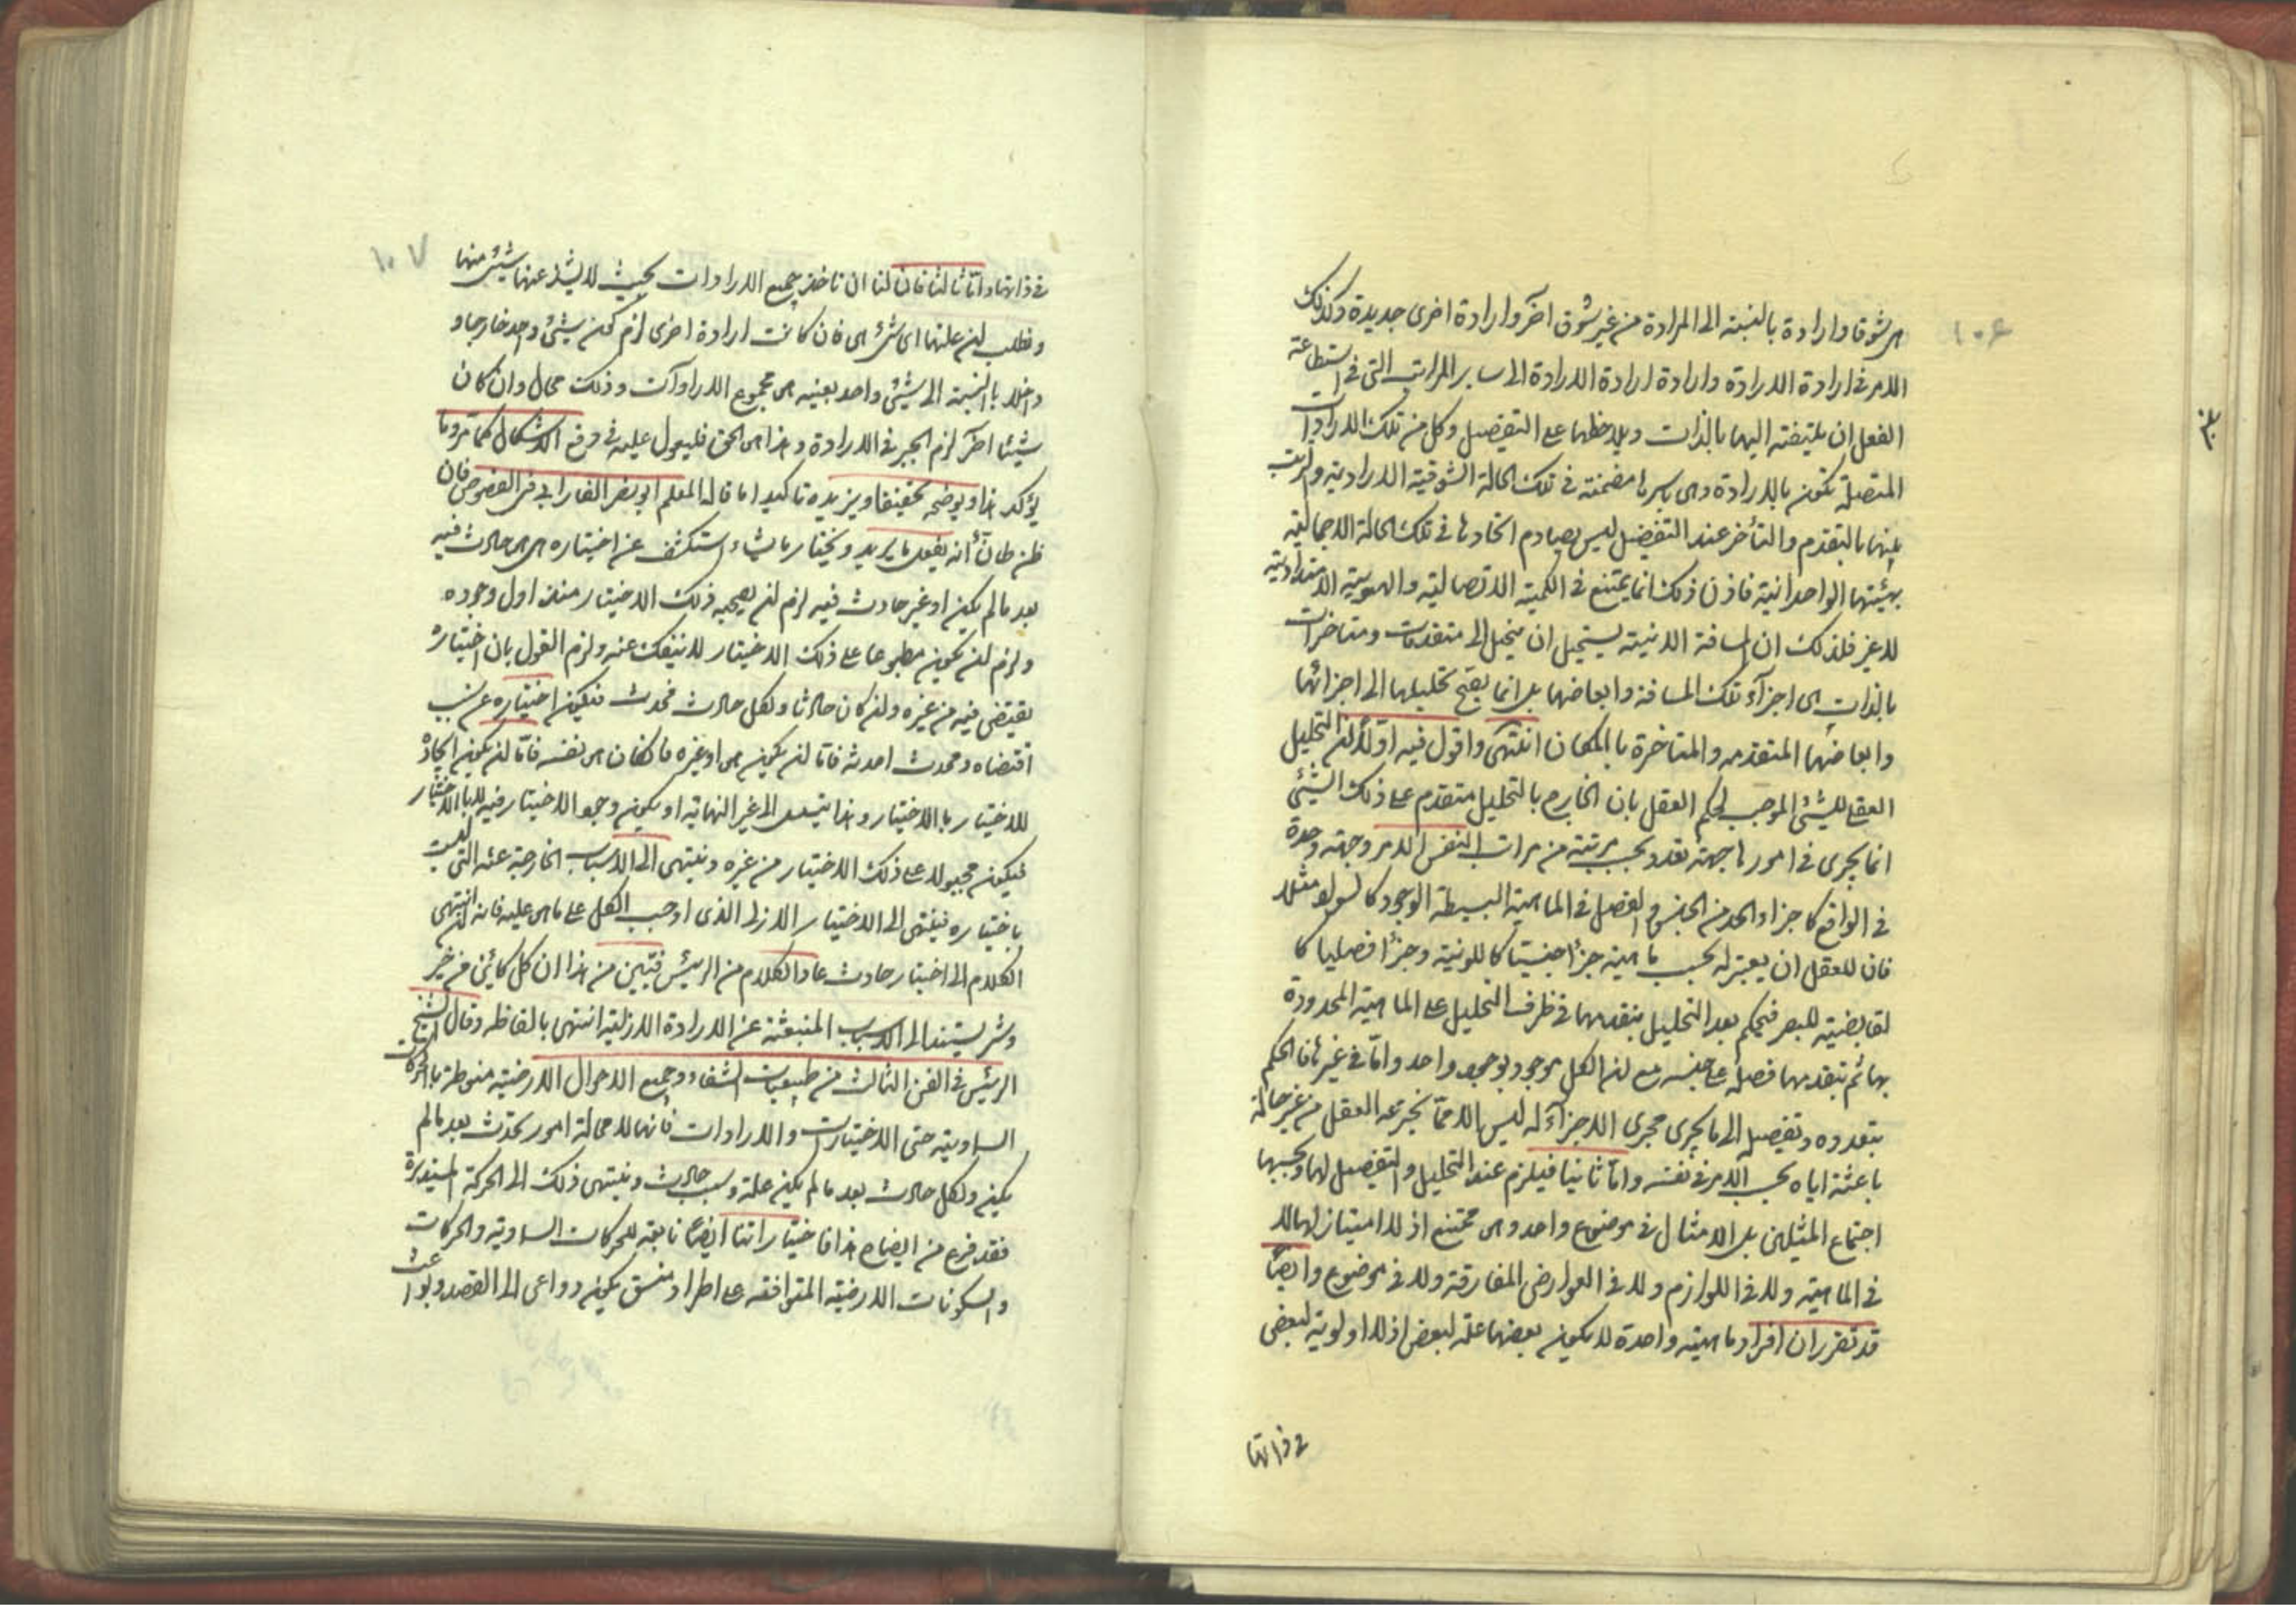 هی شوقا وارادة بالنسبة الی المرادة من غیر شوق اخر وارادة اخری جدیدة وكذلک
الامر فی ارادة الارادة وارادة ارادة الارادة الی سایر المراتب التی فی استطاعة
الفعل ان یلتفته الیها بالذات ویلاحظها علی التفصیل وكل من تلک الارادات
المتصلة تكون بالارادة وهی باسرها مضمنة فی تلک الحالة الشوقیة الارادیة والترتب
بینها بالتقدم والتأخر عند التفصیل لیس یصادم اتحادها فی تلک الحالة الاجمالیة
بهیئتها الواحدانیة فاذن ذلک انما یمتنع فی الكمیة الاتصالیة والهویة الامتدادیة
لا غیر فلذلک ان المسافة الاینیة یستحیل ان ینحل الی متقدمات ومتاخرات
بالذات هی اجزآء تلک المسافة وابعاضها بل انما یصح تحلیلها الی اجزائها
وابعاضها المتقدمه والمتاخرة بالمكان انتهی واقول فیه اولا لان التحلیل
العقلی للشیئ الموجب لحكم العقل بان الخارج بالتحلیل متقدم علی ذلک الشیئ
انما یجری فی امور لها جهة تعدد بحسب مرتبة من مراتب النفس الامر وجهة وحدة
فی الواقع كاجزاء الحد من الجنس والفصل فی الماهیة البسیطة الوجود كالسواد مثلا
فان للعقل ان یعتبر له بحسب ماهیته جزأ جنسیا كاللونیة وجزأ فصلیا كا
لقابضیة للبصر فیحكم بعد التحلیل بتقدمهما فی ظرف التحلیل علی الماهیة المحدودة
بهما ثم بتقدمها فصله علی جنسه مع ان الكل موجود بوجود واحد واما فی غیرها فالحكم
بتعدده وتفصیله الی ما یجری مجری الاجزآء له لیس الا مما یخترعه العقل من غیر حالة
باعثة ایاه بحسب الامر فی نفسه واما ثانیا فیلزم عند التحلیل والتفصیل لها وبحسبها
اجتماع المثلین بل الامثال فی موضوع واحد وهی ممتنع اذ لا امتیاز لها لا
فی الماهیة ولا فی اللوازم ولا فی العوارض المفارقة ولا فی موضوع وایضا
قد تقرر ان افراد ماهیته واحدة لا یكون بعضها علة لبعض اذ لا اولویة لبعض
فی ذاتها
۱۰۶
فی ذاتها واما ثالثا فان لنا ان ناخذ جمیع الارادات بحیث لا یشذ عنها شیئ منها
ونطلب ان علتها ای شئ هی فان كانت ارادة اخری لزم كون شیئ واحد خارجا و
داخلا بالنسبة الی شیئ واحد بعینه هی مجموع الارادات وذلک محال وان كان
شیئا اخر لزم الجبر فی الارادة وهذا هی الحق فلیعول علیه فی دفع الاشكال كما مر وما
یؤكد هذا ویوضحه تحقیقا ویزیده تاكیدا ما قاله المعلم ابو نصر الفارابی فی الفصوص فان
ظن ظانّ أنه یفعل ما یرید ویختار ما یشاء استكشف عن اختیاره هل هی حادث فیه
بعد ما لم یكن او غیر حادث فیه لزم ان یصحبه ذلک الاختیار منذ اول وجوده
ولزم ان یكون مطبوعا علی ذلک الاختیار لا ینفک عنه ولزم القول بان اختیاره
یقتضی فیه من غیره وان كان حادثا ولكل حادث محدث فیكون اختیاره عن سبب
اقتضاه ومحدث احدثه فاما ان یكون هی او غیره فان كان هی نفسه فاما ان یكون ایجاده
للاختیار بالاختیار وهذا یتسلسل الی غیر النهایة او یكون وجود الاختیار فیه لا بالاختیار
فیكون مجبولا علی ذلک الاختیار من غیره وینتهی الی الاسباب الخارجة عنه التی لیست
باختیاره فینتهی الی الاختیار الازلی الذی اوجب الكل علی ما هی علیه فانه ان انتهی
الكلام الی اختیار حادث عاد الكلام من الرئیس فتبین من هذا ان كل كائن من خیر
وشر یستند الی الاسباب المنبعثة عن الارادة الازلیة انتهی بالفاظه وقال الشیخ
الرئیس فی الفن الثالث من طبیعیات الشفاء وجمیع الاحوال الارضیة منوطة بالحركات
السماویة حتی الاختیارات والارادات فانها لا محالة امور تحدث بعد ما لم
یكن ولكل حادث بعد ما لم یكن علة وسبب حادث وینتهی ذلک الی الحركة المستدیرة
فقد فرغ من ایضاح هذا فاختیاراتنا ایضا تابعة للحركات السماویة والحركات
والسكونات الارضیة المتوافقه علی اطراد متسق یكون دواعی الی القصد وبواعث
۱۰۷